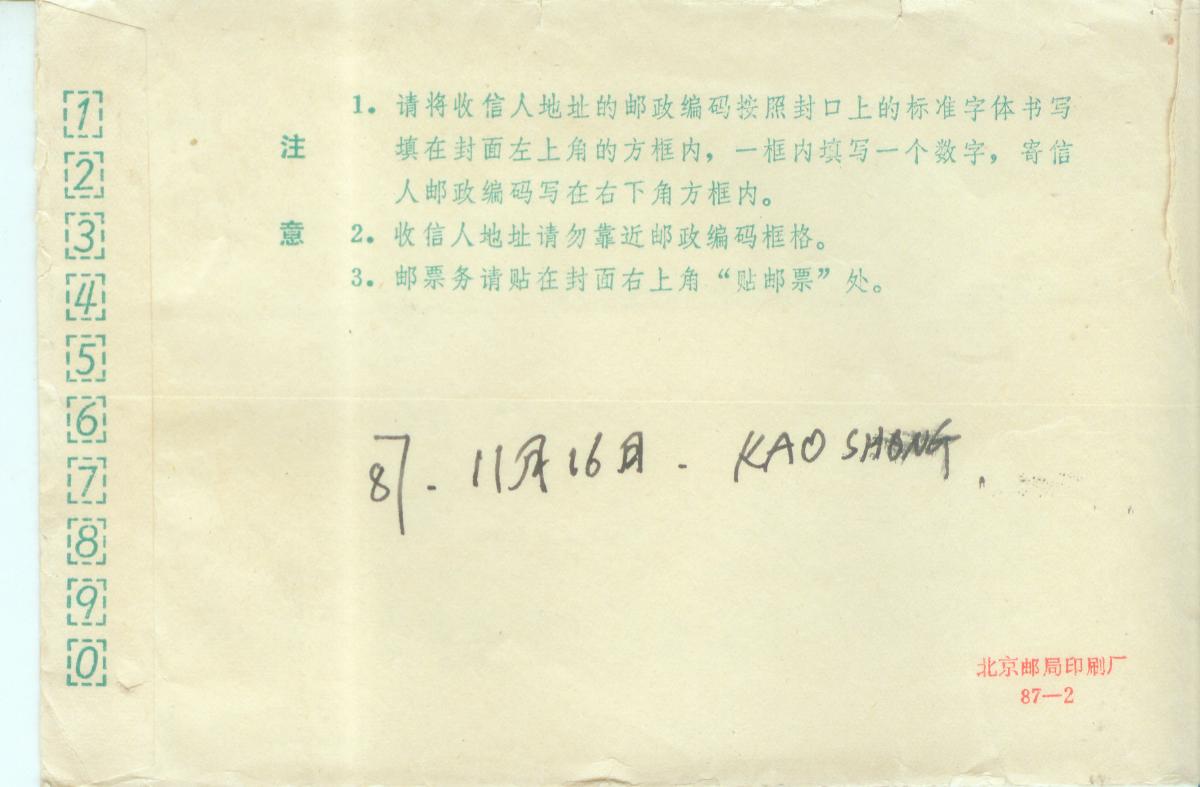 1
2
3
4
5
6
7
8
9
0
注意
1. 请将收信人地址的邮政编码按照封口上的标准字体书写
填在封面左上角的方框内，一框内填写一个数字，寄信
人邮政编码写在右下角方框内。
2. 收信人地址请勿靠近邮政编码框格。
3. 邮票务请贴在封面右上角“贴邮票”处。
87. 11月16日. KAO SHONG.
北京邮局印刷厂
87—2